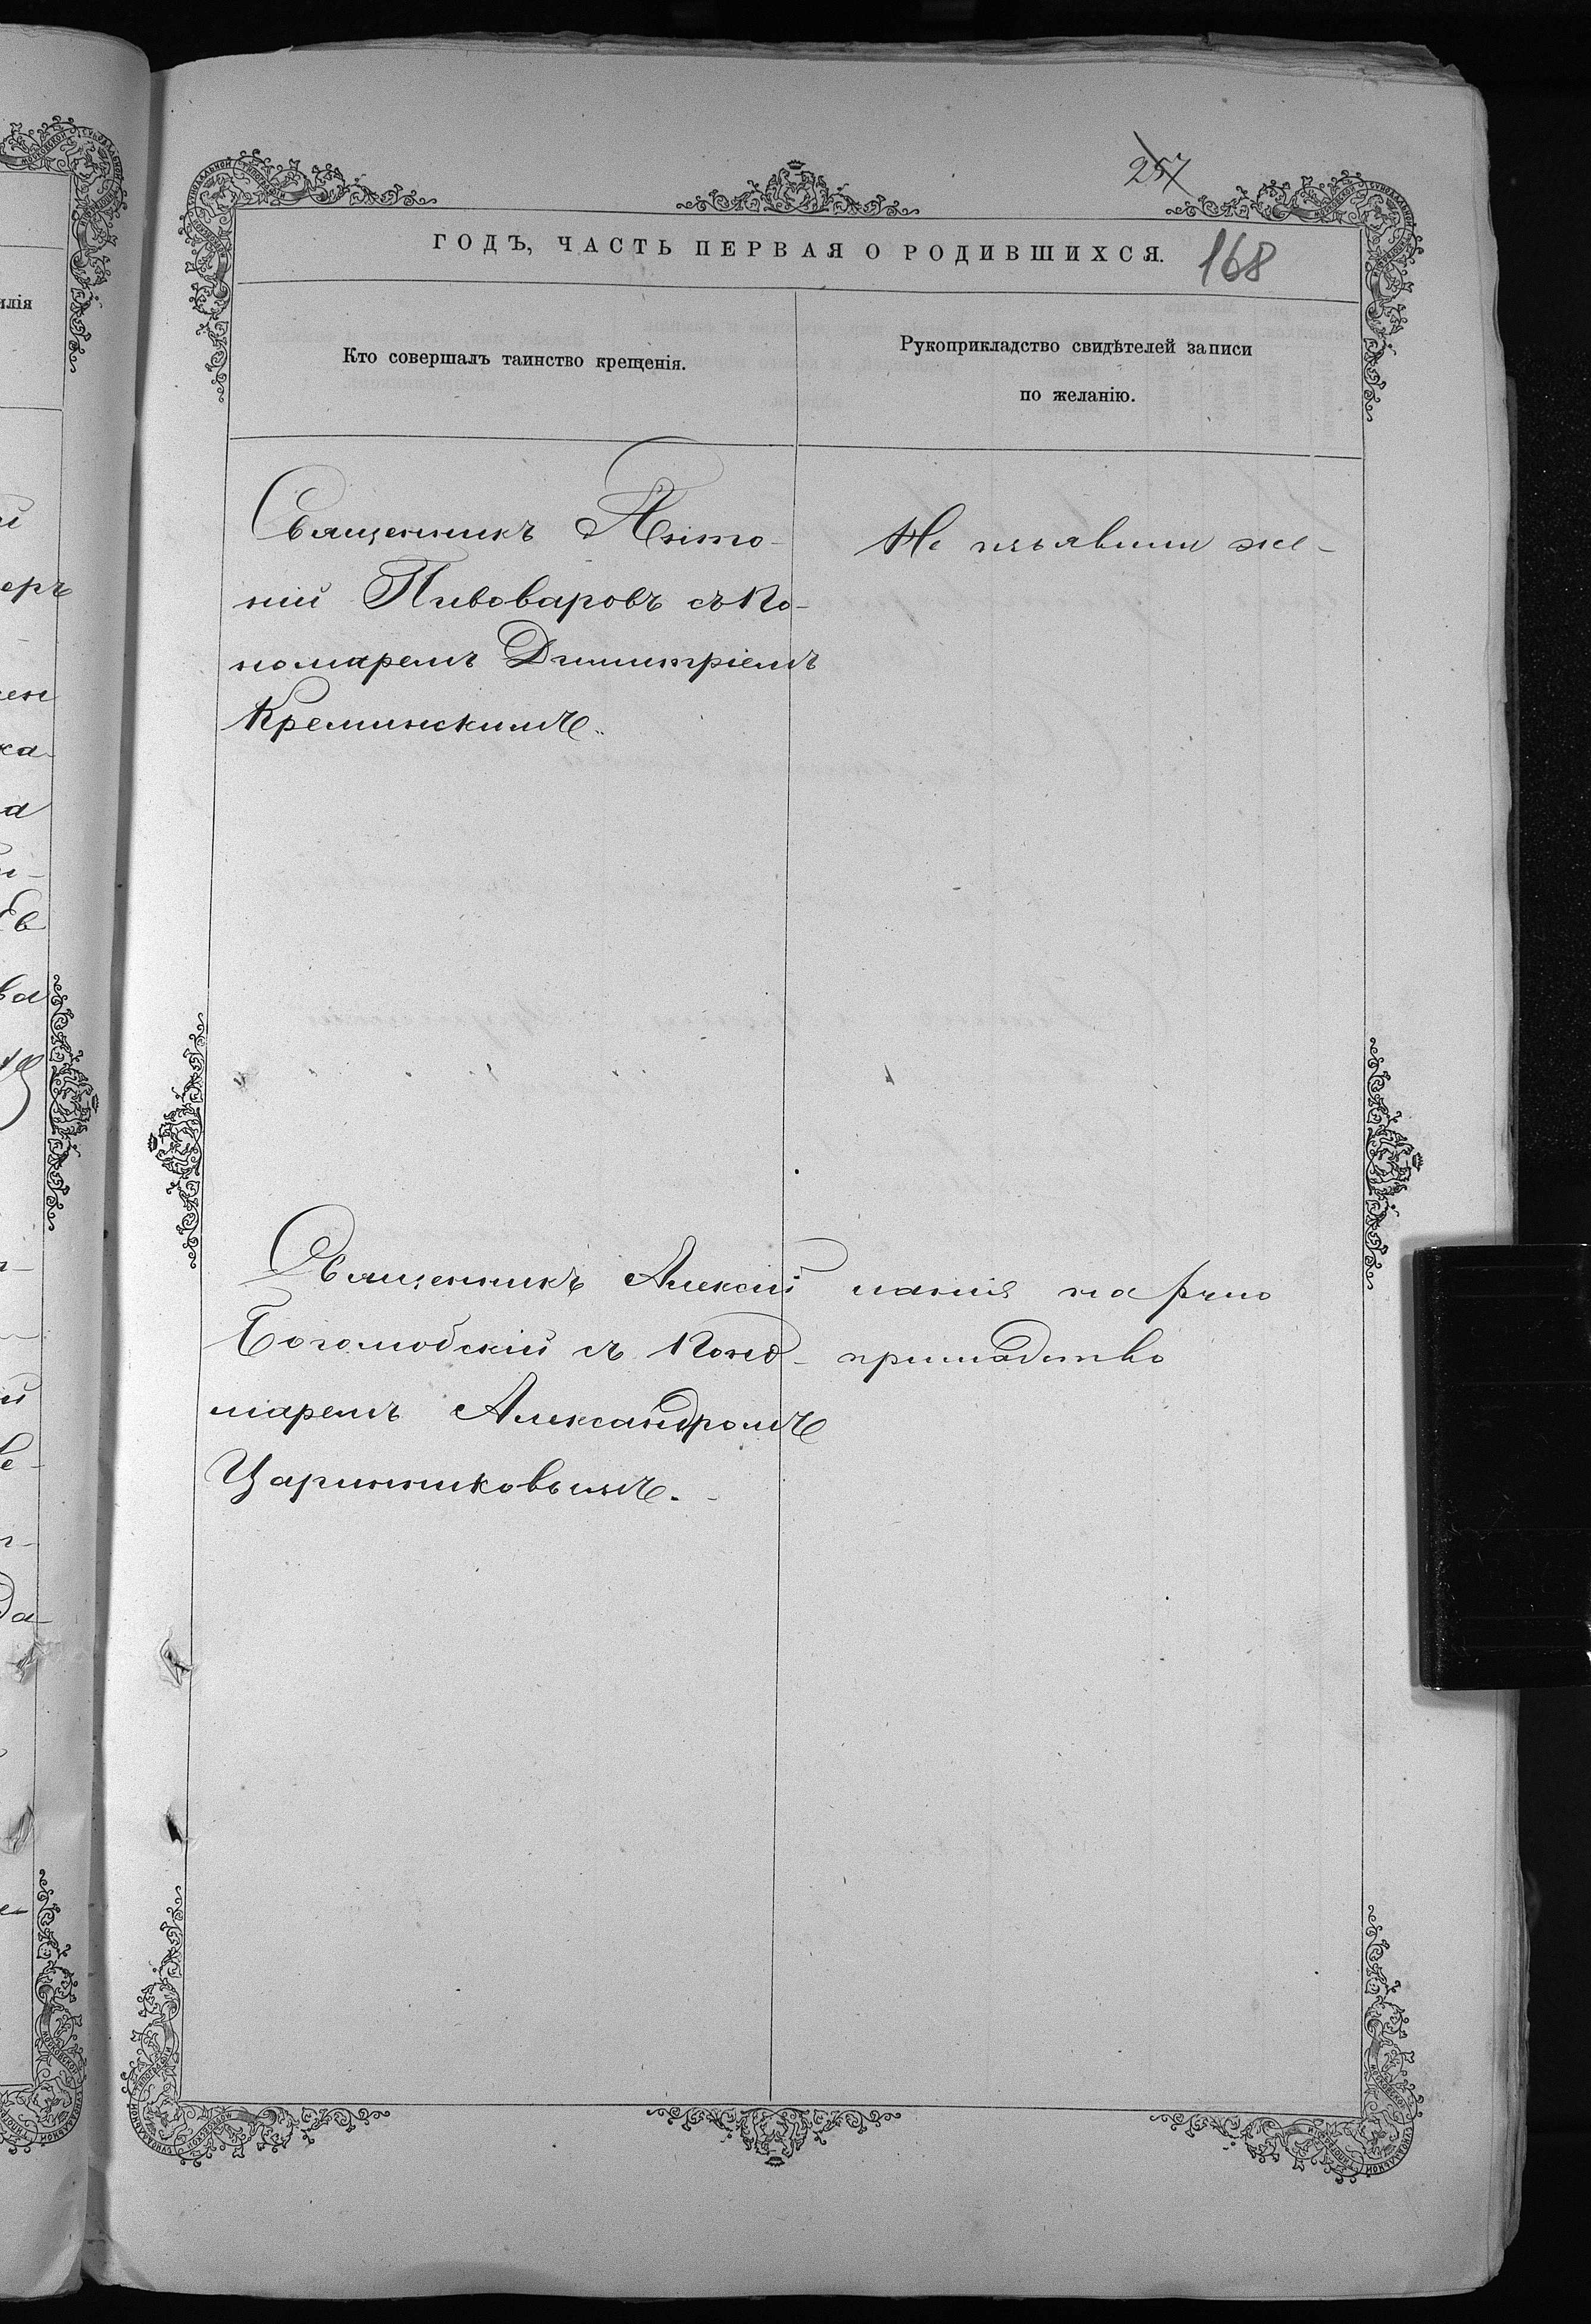 257
ГОДЪ, ЧАСТЬ ПЕРВАЯ О РОДИВШИХСЯ.
168
Кто совершалъ таинство крещенія.
Рукоприкладство свидѣтелей записи
по желанію.
Священникъ Анто-
ній Пивоваровъ съ По-
номаремъ Димитріемъ
Кременскимъ.
Не изъявили же-
Священникъ Алексій
Боголюбскій съ Поно-
маремъ Александромъ
Царинниковымъ.
ланія на руко
прикладство
илія
еръ
ка-
а
Ев
ва
да-